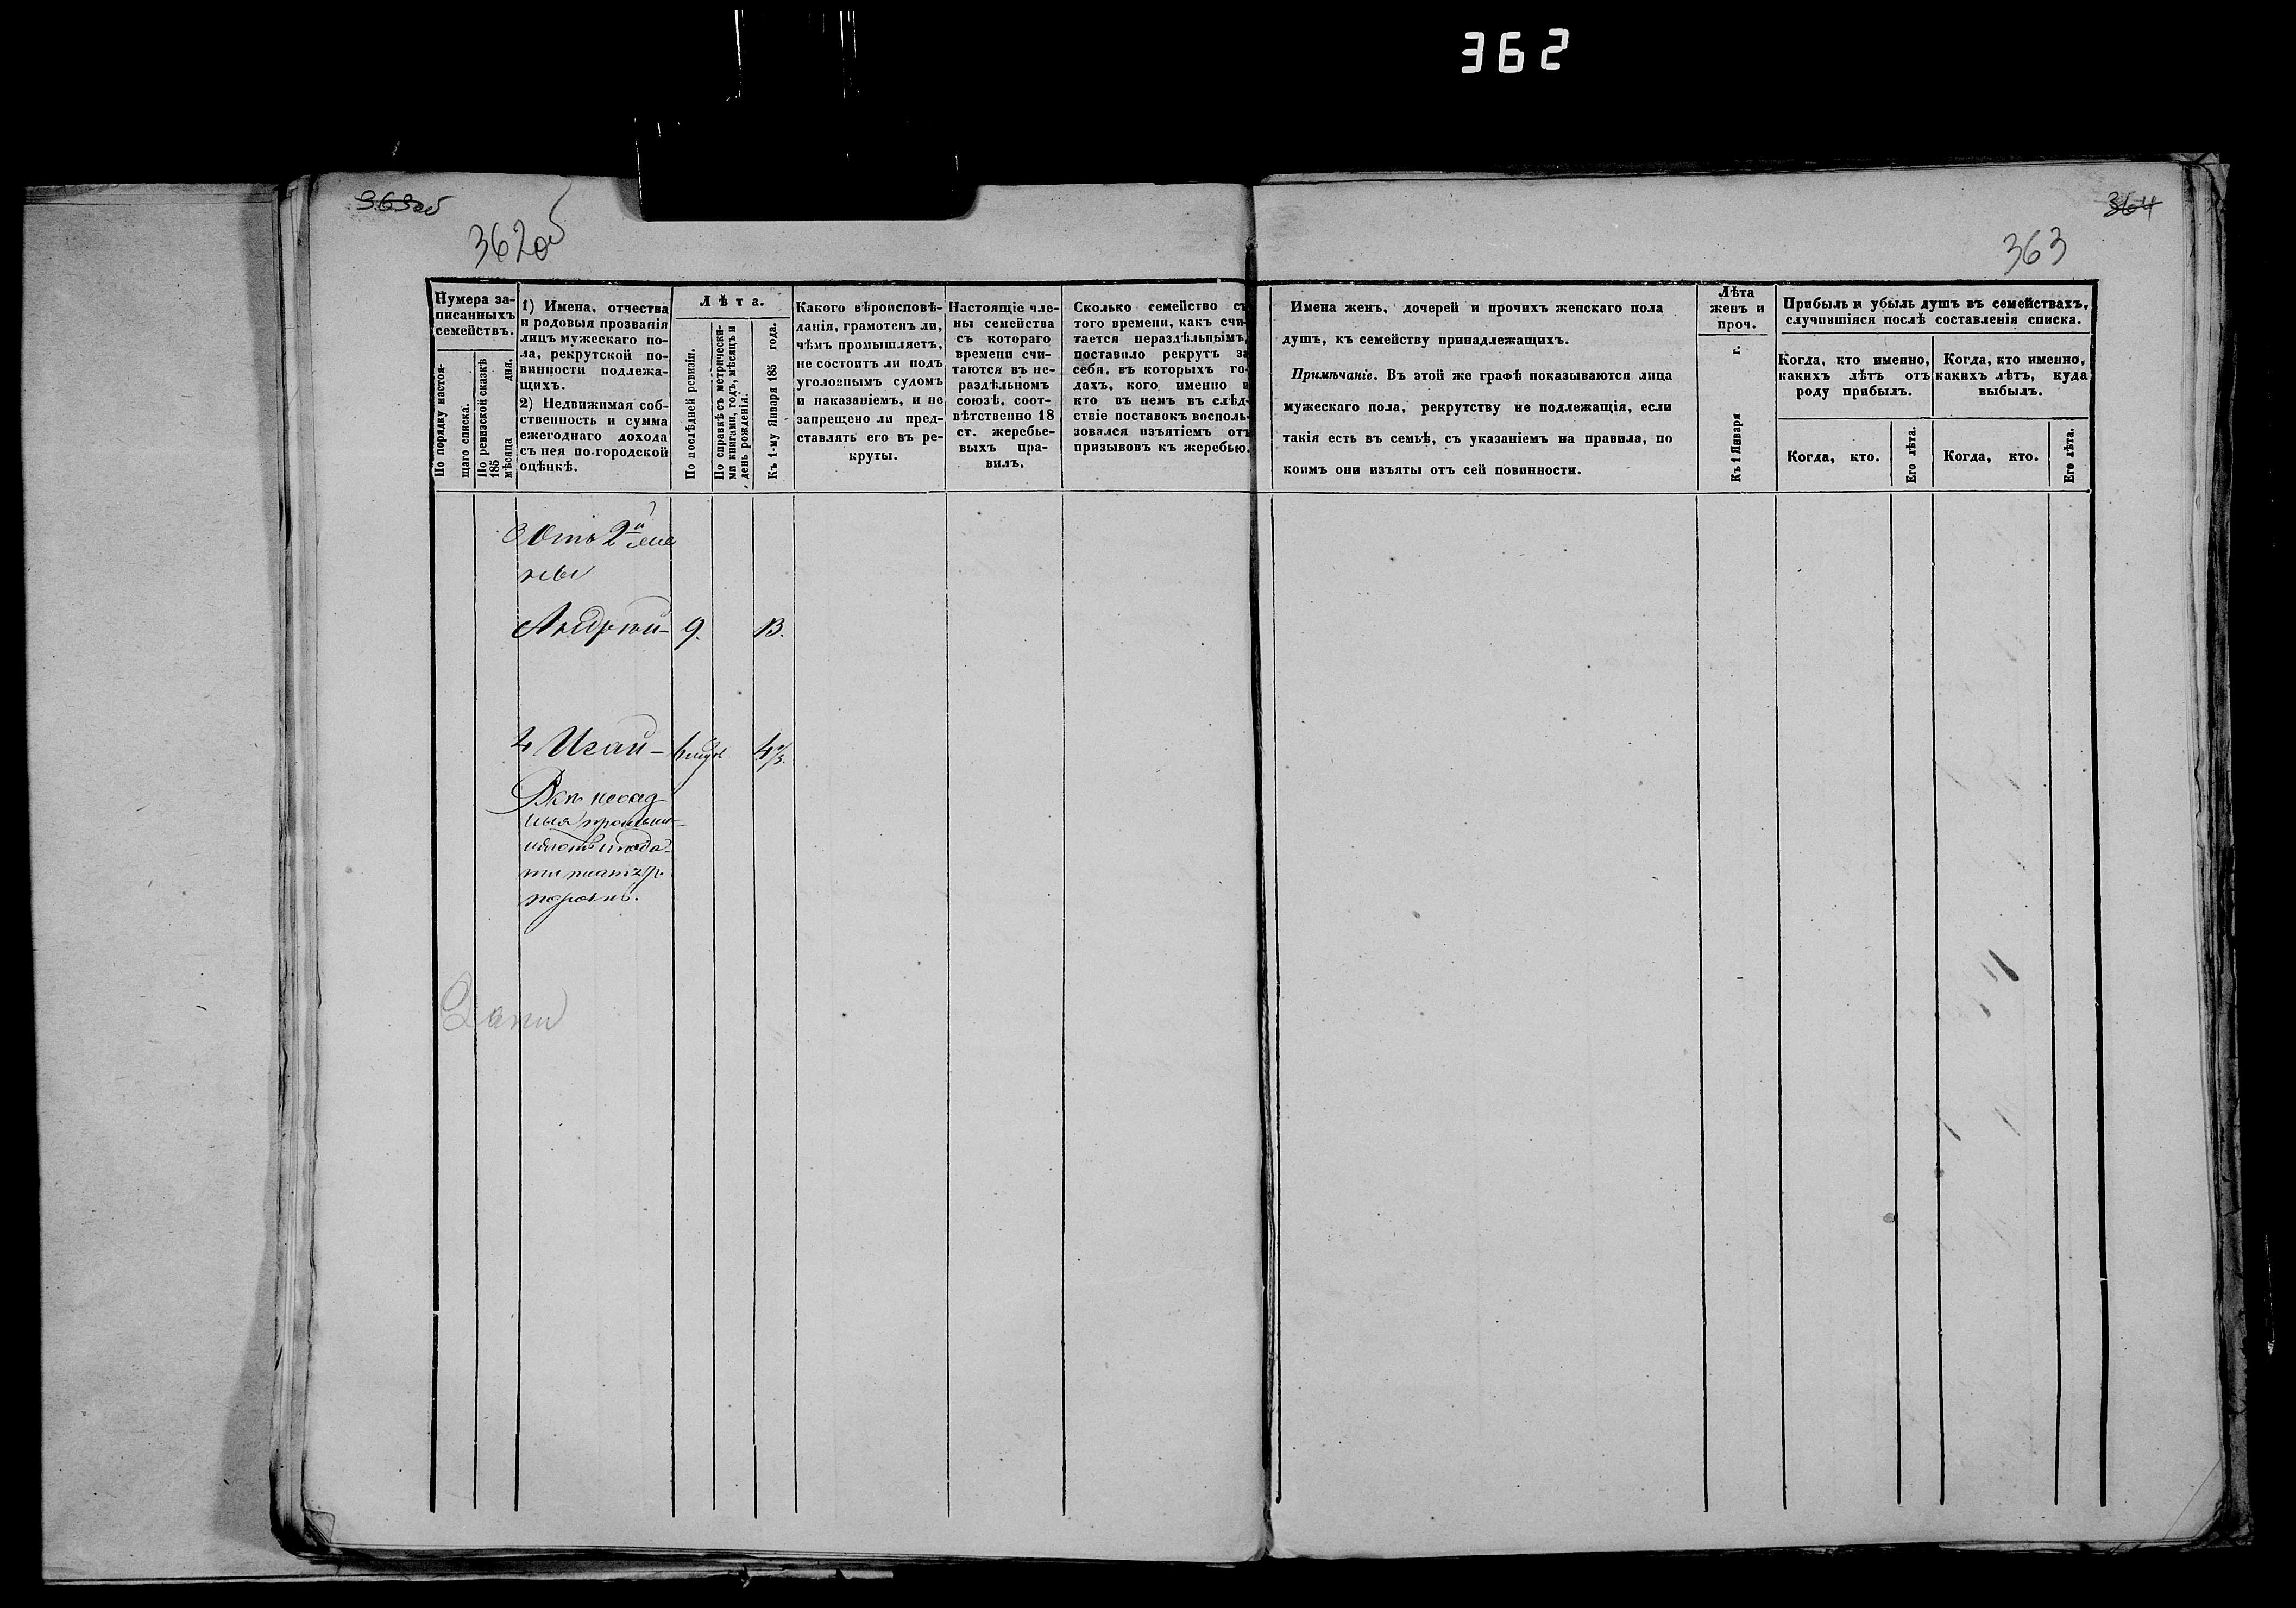 362
363об
362об
364
363
Нумера за-
писанныхъ
семействъ.
По порядку настоя-
щаго списка.
По ревизской сказкѣ
185 мѣсяца дня.
1) Имена, отчества
и родовыя прозванія
лицъ мужескаго по-
ла, рекрутской по-
винности подлежа-
щихъ.
2) Недвижимая соб-
ственность и сумма
ежегоднаго дохода
съ нея по городской
оцѣнкѣ.
Лѣта.
По послѣдней ревизіи.
По справкѣ съ метрически-
ми книгами, годъ, мѣсяцъ и
день рожденія.
Къ 1-му Января 185 года.
Какого вѣроисповѣ-
данія, грамотенъ ли,
чѣмъ промышляетъ,
не состоитъ ли подъ
уголовнымъ судомъ
и наказаніемъ, и не
запрещено ли пред-
ставлять его въ ре-
круты.
Настоящіе чле-
ны семейства
съ котораго
времени счи-
таются въ не-
раздѣльномъ
союзѣ, соот-
вѣтственно 18
ст. жеребье-
выхъ пра-
вилъ.
Сколько семейство съ
того времени, какъ счи-
тается нераздѣльнымъ,
поставило рекрутъ за
себя, въ которыхъ го-
дахъ, кого именно и
кто въ немъ въ слѣд-
ствіе поставокъ восполь-
зовался изъятіемъ отъ
призывовъ къ жеребью.
Имена женъ, дочерей и прочихъ женскаго пола
душъ, къ семейству принадлежащихъ.
Примѣчаніе. Въ этой же графѣ показываются лица
мужескаго пола, рекрутству не подлежащія, если
такія есть въ семьѣ, съ указаніемъ на правила, по
коимъ они изъяты отъ сей повинности.
Лѣта
женъ и
проч.
Къ 1 Января г.
Прибыль и убыль душъ въ семействахъ,
случившіяся послѣ составленія списка.
Когда, кто именно,
какихъ лѣтъ отъ
роду прибылъ.
Когда, кто именно,
какихъ лѣтъ, куда
выбылъ.
Когда, кто.
Его лѣта.
Когда, кто.
Его лѣта.
Отъ 2й же
ны
Андрей 9. 13.
4 Исай